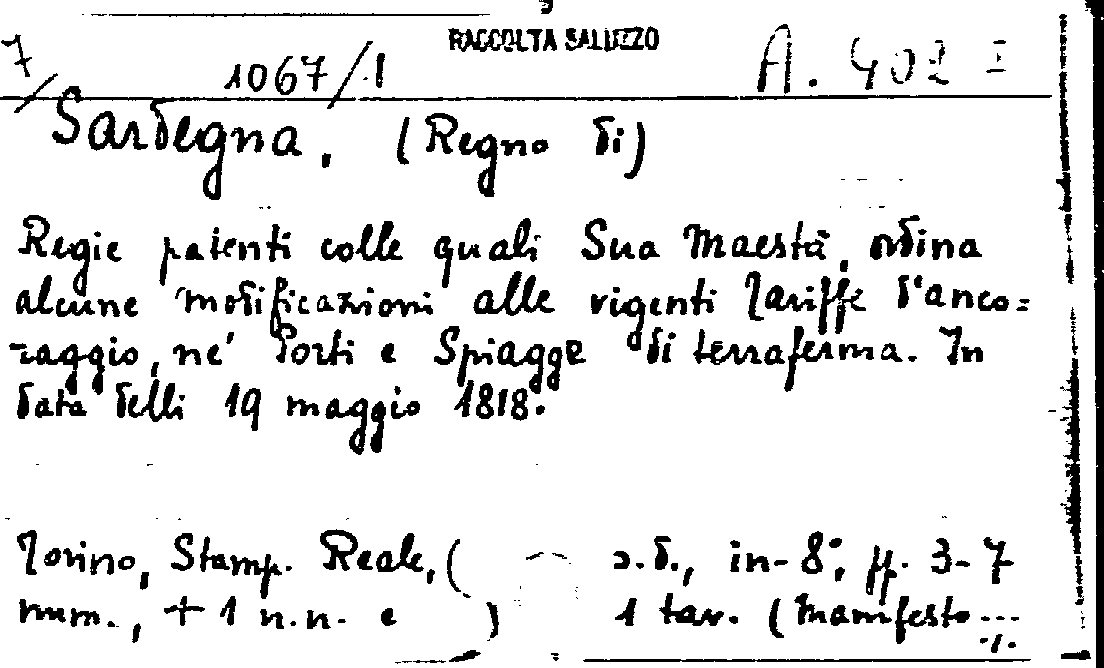 RACCOLTA SALUZZO
7/ 1067/1 A. 402 I
Sardegna. (Regno di)
Regie patenti colle quali Sua Maestà, ordina
alcune modificazioni alle vigenti Tariffe d'anco=
raggio, ne' Porti e Spiagge di terraferma. In
data delli 19 maggio 1818.
Torino, Stamp. Reale, ( s.d., in-8°, pp. 3-7
num., + 1 n.n. e ) 1 tav. (Manifesto...
./.